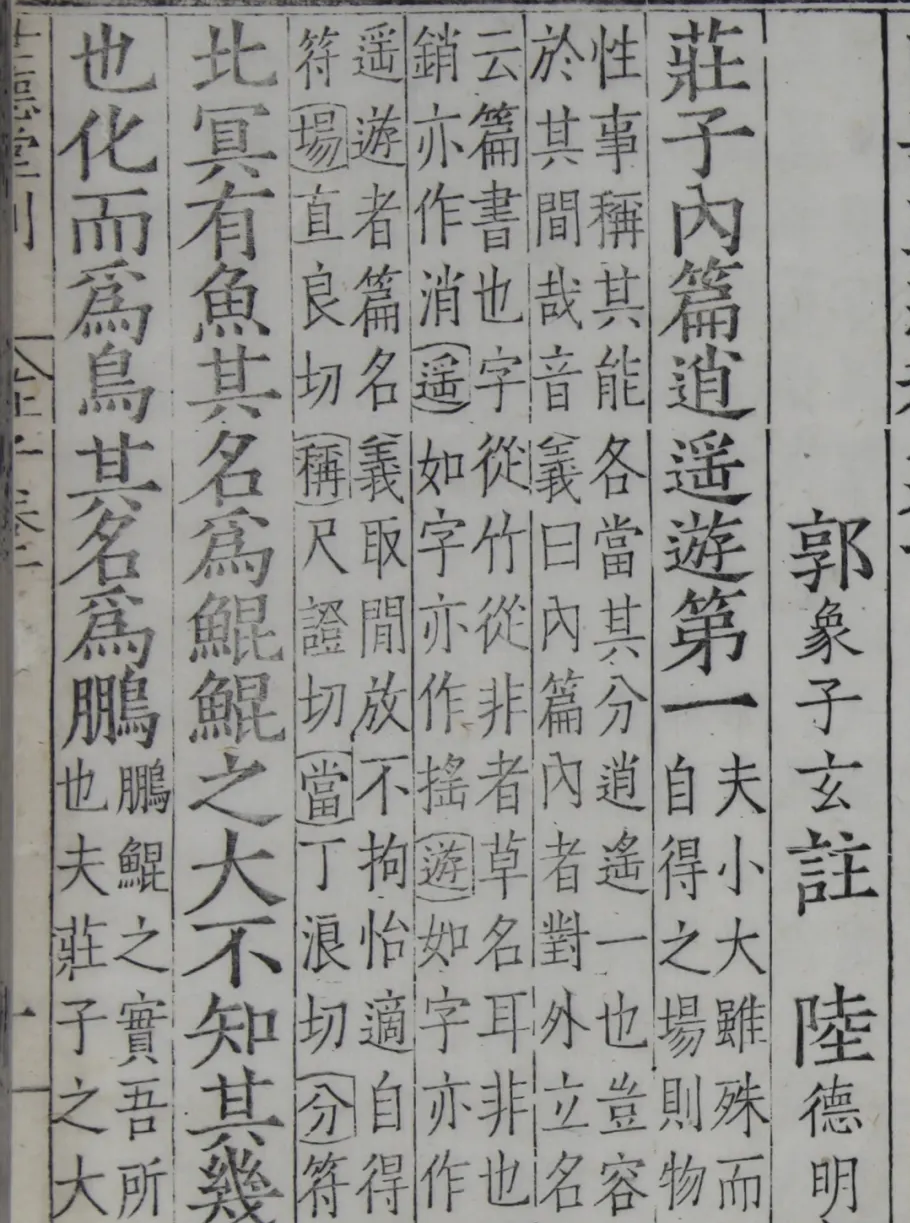 郭象子玄註　陸德明
莊子內篇逍遥遊第一
夫小大雖殊而
自得之場則物
性事稱其能各當其分逍遙一也豈容
於其間哉音義曰內篇內者對外立名
云篇書也字從竹從非者草名耳非也
銷亦作消遥如字亦作搖遊如字亦作
遥遊者篇名義取閒放不拘怡適自得
符場直良切稱尺證切當丁浪切分符
北冥有魚其名爲鯤鯤之大不知其幾
也化而爲鳥其名爲鵬
鵬鯤之實吾所
也夫莊子之大